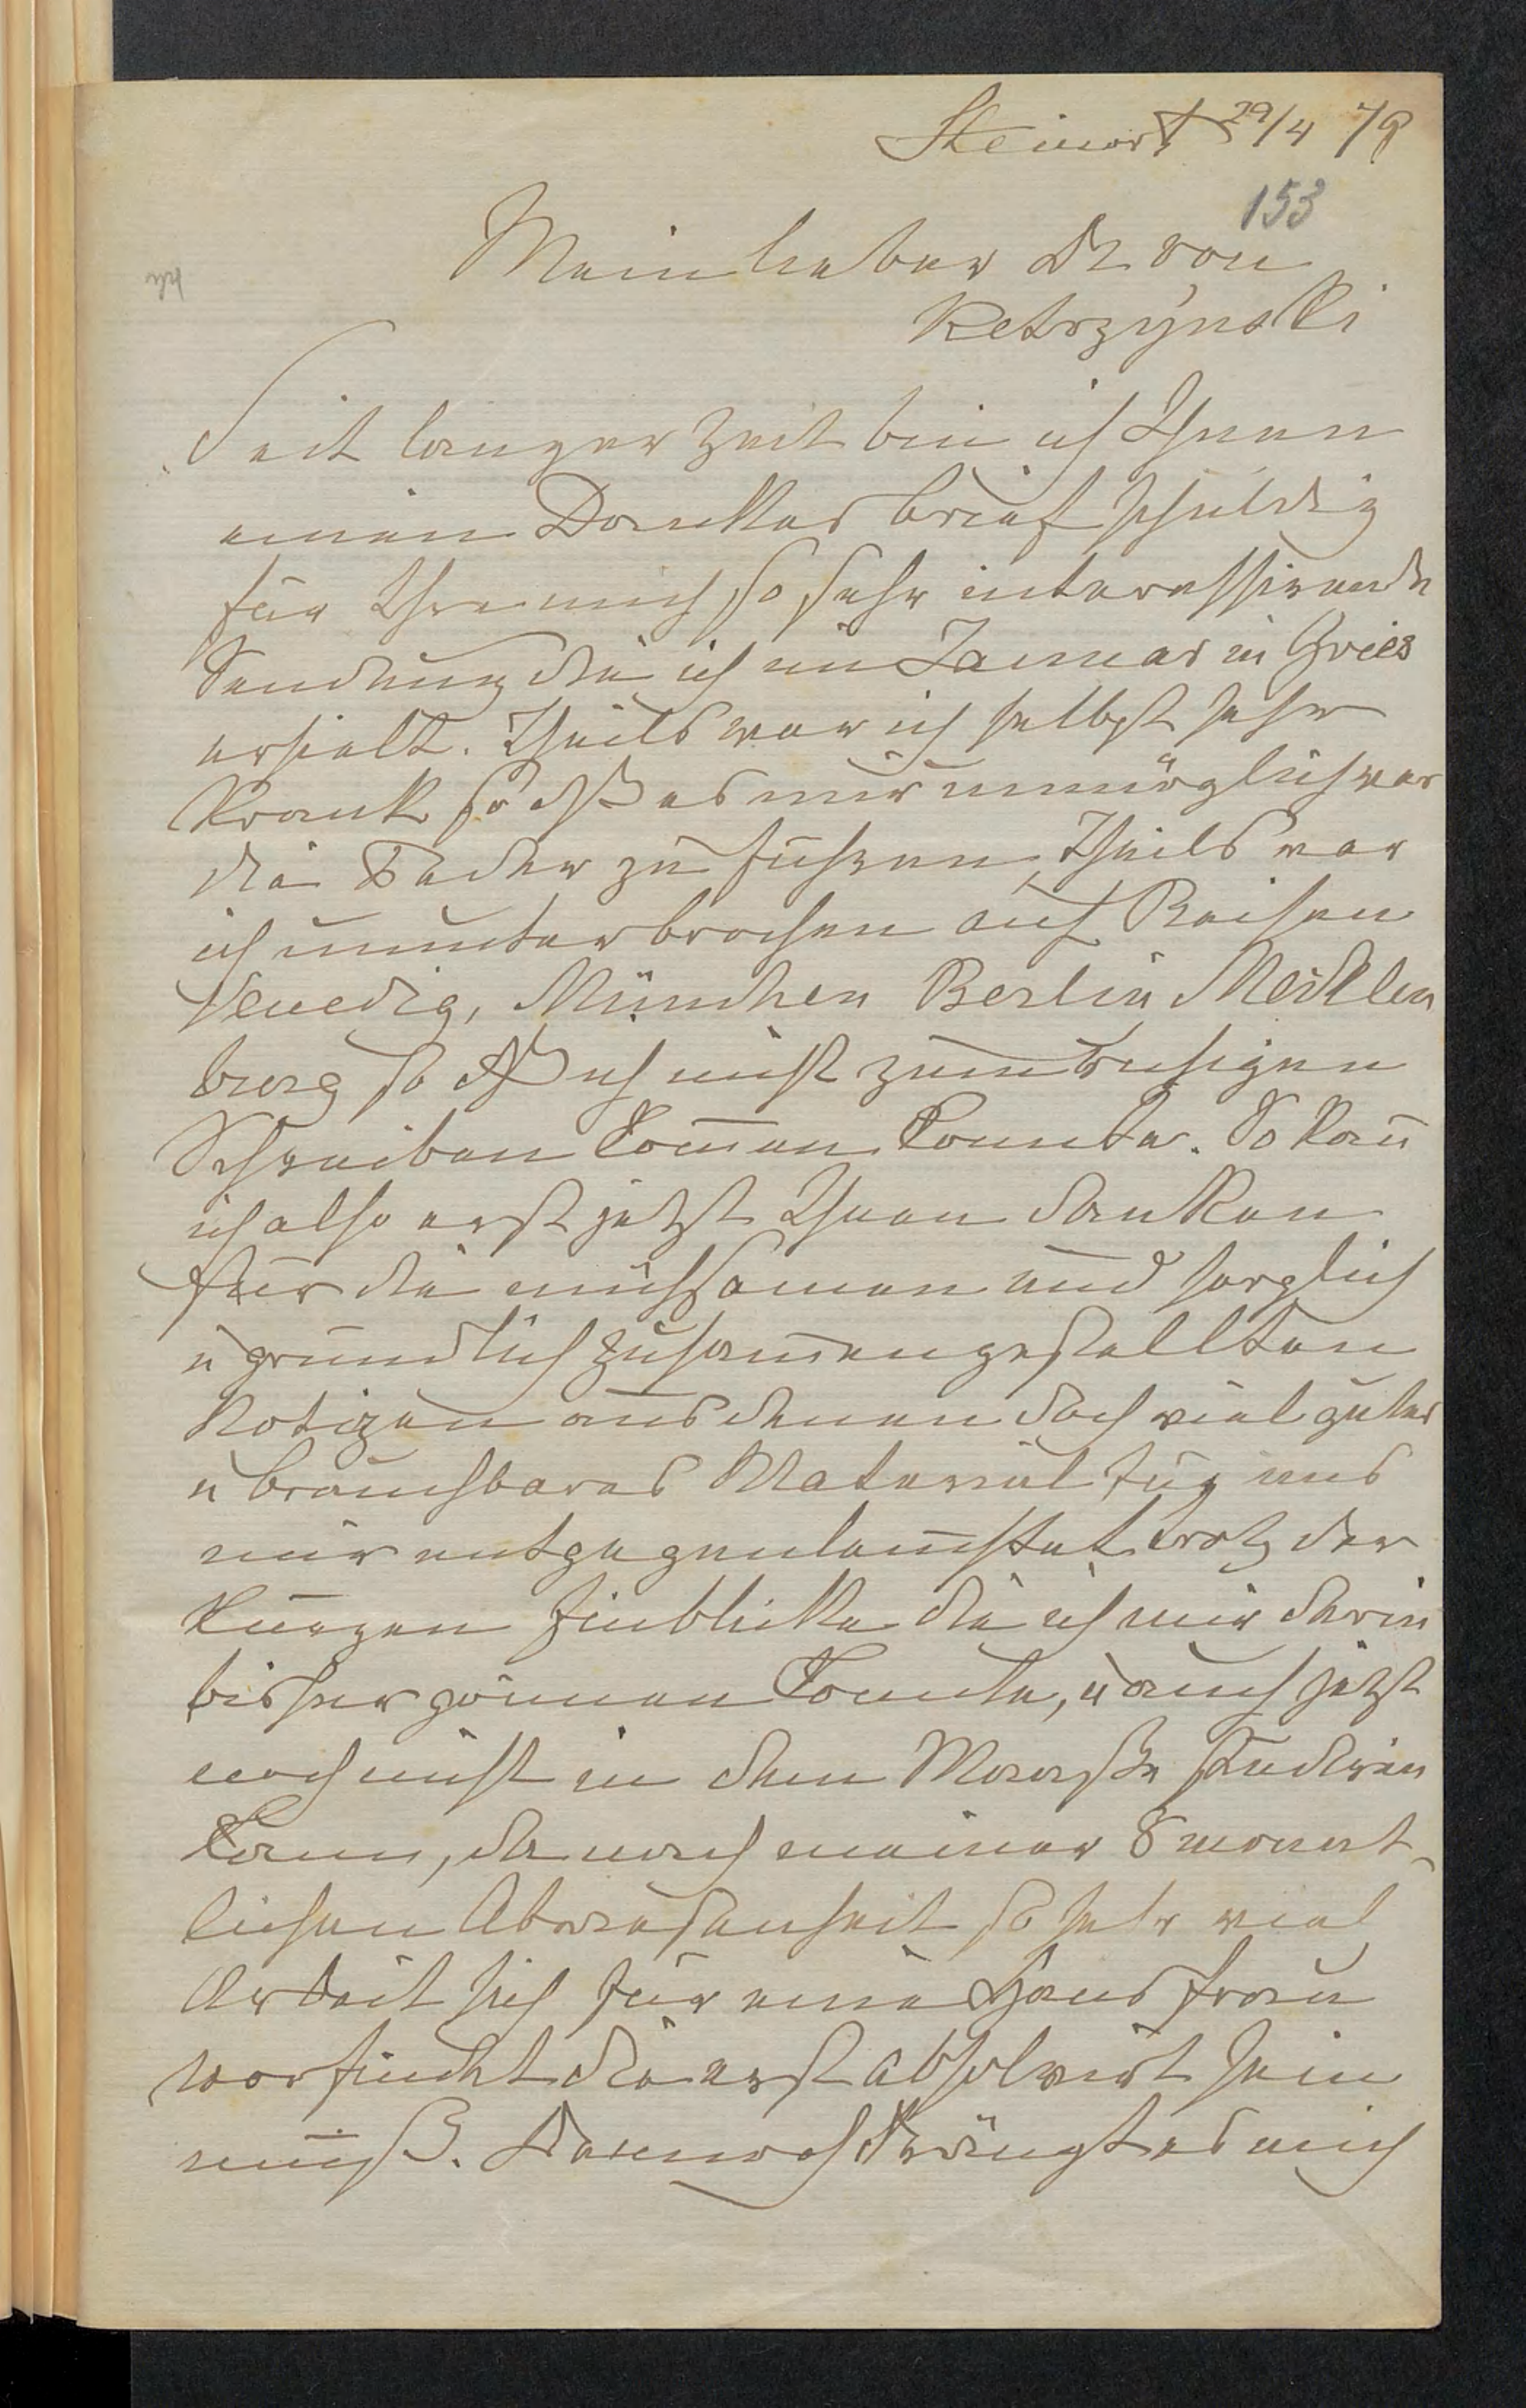 Steinort 29/4 78
153
Mein lieber Dr von
Ketrzynski
Seit langer Zeit bin ich Ihnen
einen Dankes brief schuldig
für Ihre mich so sehr interessirende
Sendung die ich im Januar in Gries
erhielt. Theils war ich selbst sehr
krank so dß es mir unmöglich war
die Feder zu führen, Theils war
ich ununterbrochen auf Reisen
Venedig, München Berlin Mecklen
burg so dß ich nicht zum ruhigen
Schreiben kom̄en konnte. So kan̄
ich also erst jetzt Ihnen danken
für die mühsamen und sorglich
u gründlich zusam̄engestellten
Notizen aus denen doch viel gutes
u brauchbares Material für uns
mir entgegenleuchtet trotz der
kurzen Einblicke die ich mir darin
bisher gönnen konnte, u auch jetzt
noch nicht in dem Maaße studiren
kann, da nach meiner 8 monat-
lichen Abwesenheit so sehr viel
Arbeit sich für eine Hausfrau
vorfindet die erst absolvirt sein
muß. Dennoch drängt es mich